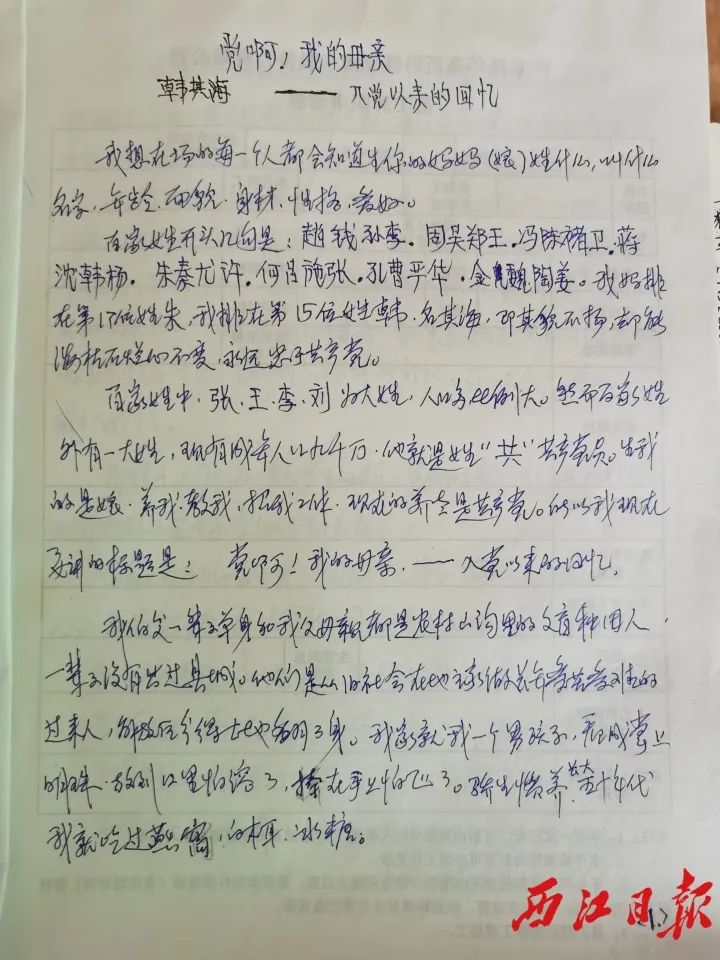 党啊！我的母亲
韩其海 —— 入党以来的回忆
我想在场的每一个人都会知道生你的妈妈（娘）姓什么，叫什么
名字、年龄、面貌、身材、性格、爱好。
百家姓开头几句是：赵钱孙李．周吴郑王．冯陈褚卫．蒋
沈韩杨．朱秦尤许．何吕施张．孔曹严华．金魏陶姜。我妈排
在第17位姓朱，我排在第15位姓韩．名其海，即其貌不扬，却能
海枯石烂心不变，永远忠于共产党。
百家姓中，张、王、李、刘为大姓，人口多比例大。然而百家姓
外有一大姓，现有成年人口九千万．他就是姓“共”共产党员。生我
的是娘．养我．教我，招我工作．现在的养老是共产党。所以我现在
要讲的标题是：党啊！我的母亲．——入党以来的回忆．
我伯父一辈子单身和我父母亲都是农村山沟里的文盲种田人．
一辈子没有出过县城。他们是从旧社会在地主家做长年受苦受难的
过来人，解放后分得土地翻了身。我家就我一个男孩子，看成掌上
明珠．放到口里怕溶了，捧在手上怕飞了。娇生惯养长大五十年代
我就吃过燕窝，白木耳．冰糖。
西江日报